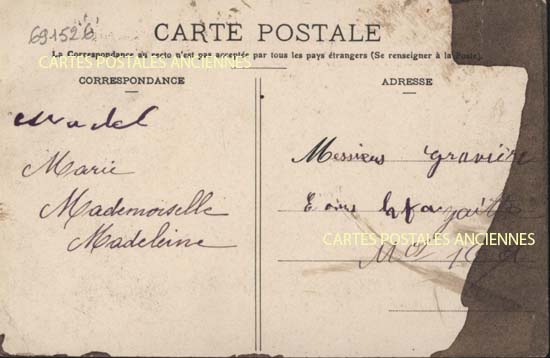 69152 B
CARTE POSTALE
La Correspondance au recto n'est pas acceptée par tous les pays étrangers (Se renseigner à la Poste).
CARTES POSTALES ANCIENNES
CORRESPONDANCE
ADRESSE
Madel
Marie
Mademoiselle
Madeleine
Messieurs
CARTES POSTALES ANCIENNES